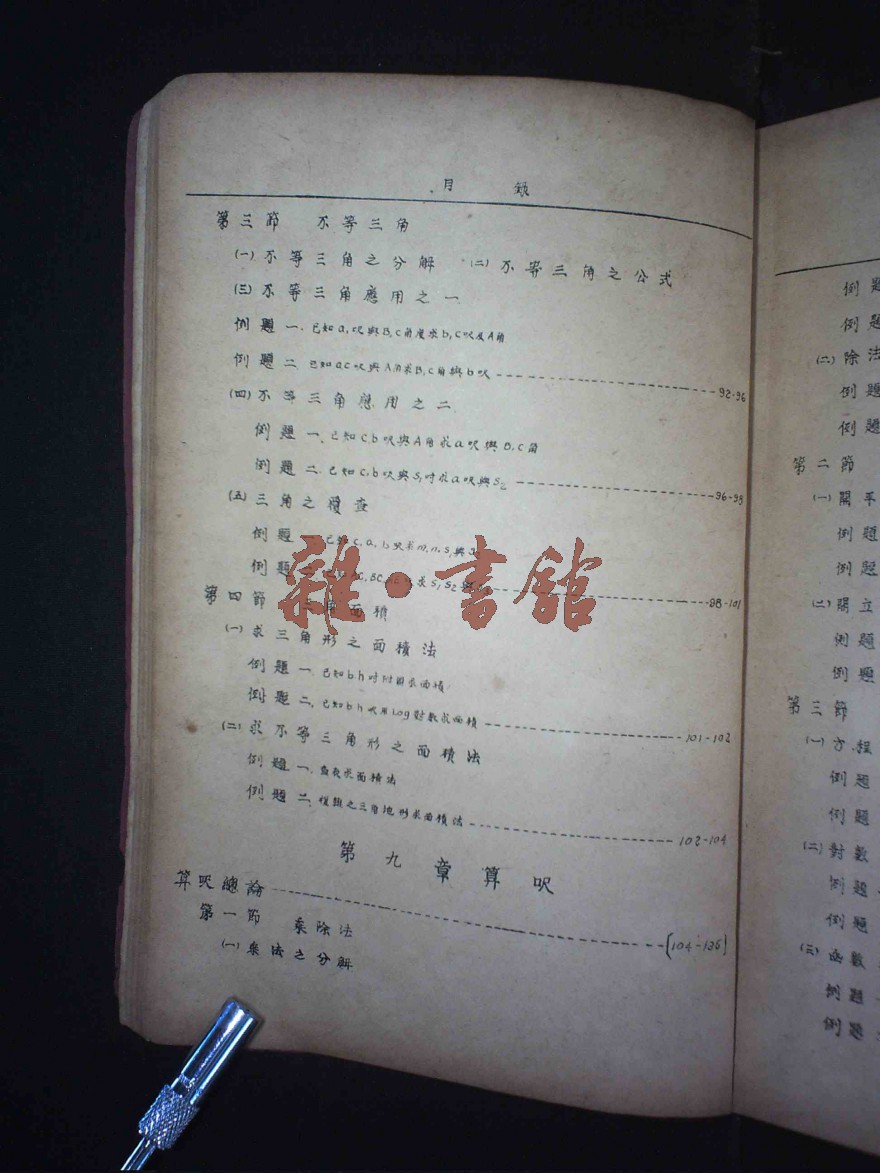 目錄
第三節 不等三角
㈠不等三角之分解 ㈡不等三角之公式
㈢不等三角應用之一
例題一.已知a,呎與B,C角度求b,c呎及A角
例題二.已知ac呎與A角求B,C角與b呎 92-96
㈣不等三角應用之二
例題一.已知cb呎與A角求a呎與B,C角
例題二.已知c,b呎與S,吋求a呎與S2 96-98
㈤三角之複查
例題一.已知c,a,b呎求m,n,S,與
例題 求S,S2 98-101
雜·書館
第四節 三角面積
㈠求三角形之面積法
例題一.已知bh吋附圖求面積
例題二.已知bh呎用Log對數求面積 101-102
㈡求不等三角形之面積法
例題一.查表求面積法
例題二.複雜之三角地形求面積法 102-104
第九章算呎
算呎總論 [104-136]
第一節 乘除法
㈠乘法之分解
例題
例題
㈡除法
例題
例題
第二節
㈠開平
例題
例題
㈡開立
例題
例題
第三節
㈠方程
例題
例題
㈡對數
例題
例題
㈢函數
例題
例題